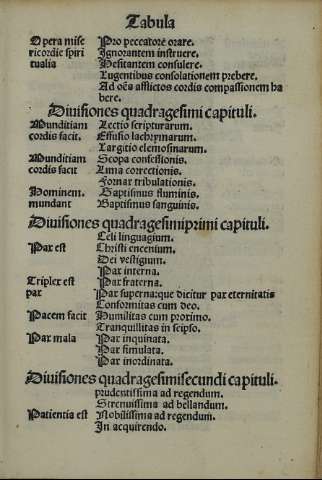 Tabula
Opera mise Pro peccatore orare.
ricordie spiri Ignorantem instruere.
tualia Hesitantem consulere.
Lugentibus consolationem prebere.
Ad oẽs afflictos cordis compassionem ha
bere.
Divisiones quadragesimi capituli.
Munditiam Lectio scripturarum.
cordis facit. Effusio lachrymarum.
Largitio elemosinarum.
Munditiam Scopa confessionis.
cordis facit Lima correctionis.
Fornax tribulationis.
Hominem. Baptismus fluminis.
mundant Baptismus sanguinis.
Divisiones quadragesimiprimi capituli.
Celi linguagium.
Pax est Christi encenium.
Dei vestigium.
Pax interna.
Triplex est Pax fraterna.
pax Pax superna: que dicitur pax eternitatis
Conformitas cum deo.
Pacem facit Humilitas cum proximo.
Tranquillitas in seipso.
Pax mala Pax inquinata.
Pax simulata.
Pax inordinata.
Divisiones quadragesimisecundi capituli.
prudentissima ad regendum.
Strenuissima ad bellandum.
Patientia est Nobilissima ad regendum.
In acquirendo.